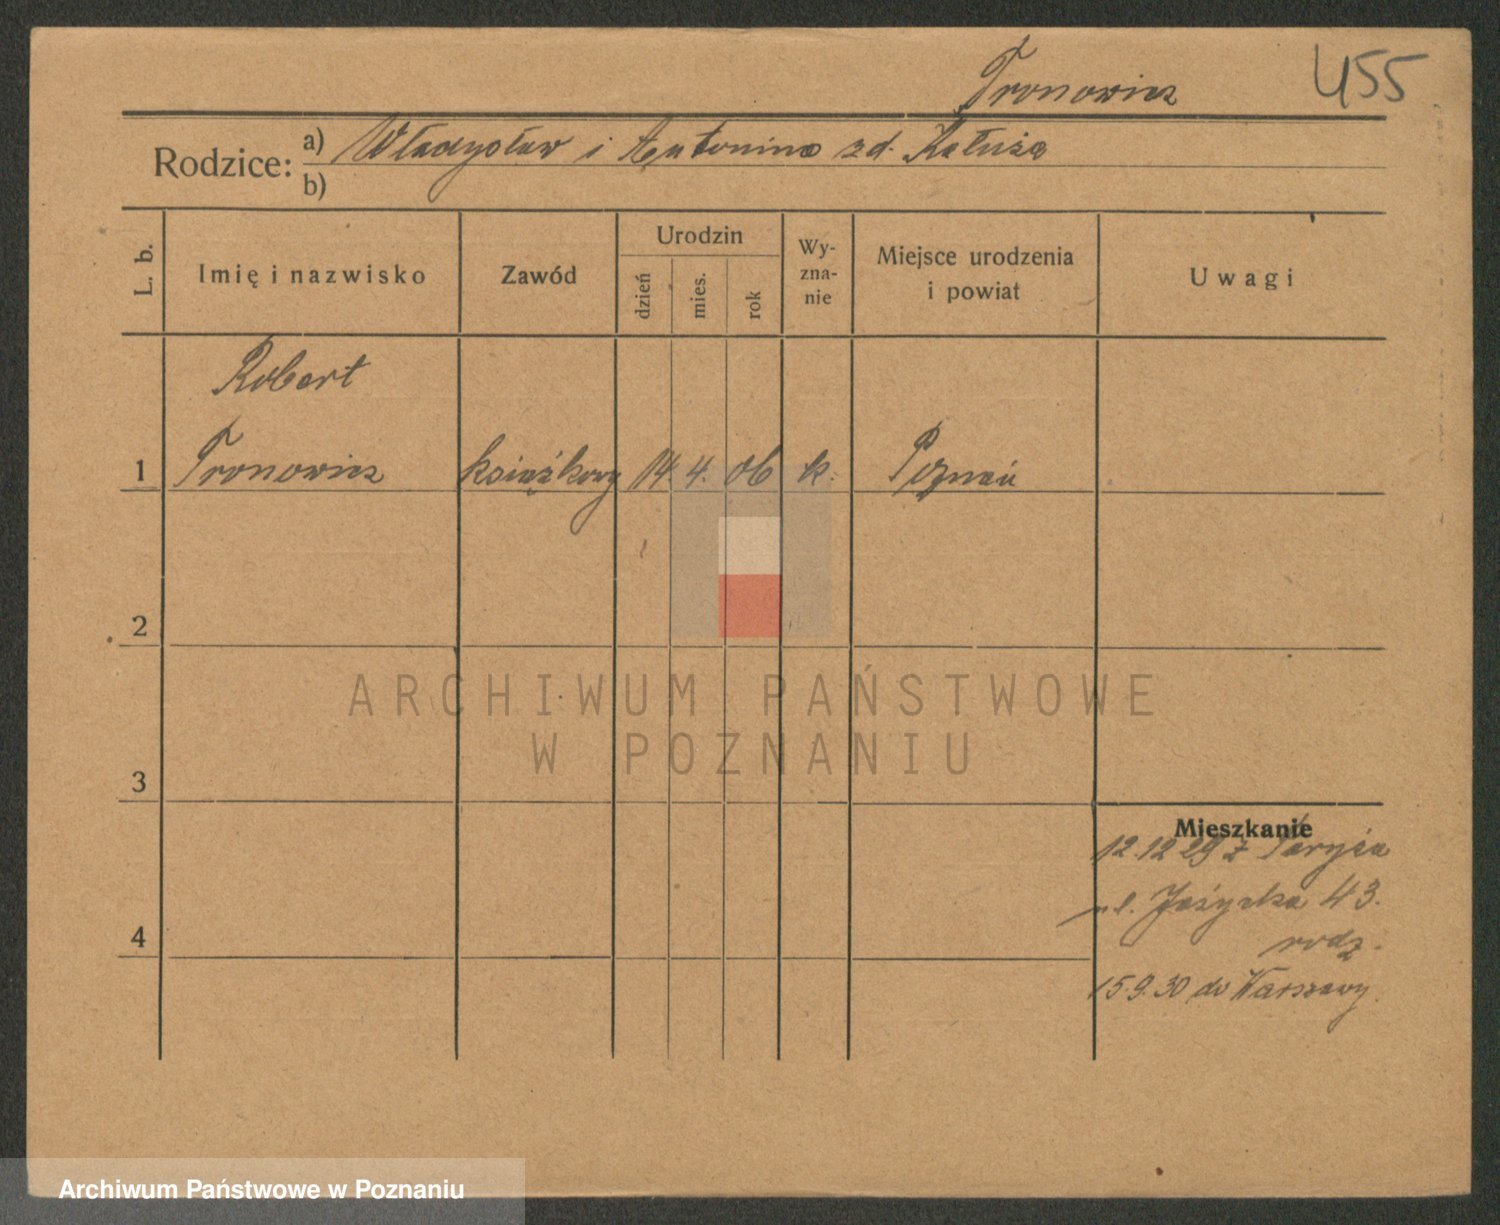 Tronowicz 455
Rodzice: a) Władysław i Antonina zd. Kałuża
b)
L. b. Imię i nazwisko Zawód Urodzin dzień mies. rok Wy-zna-nie Miejsce urodzenia i powiat Uwagi
Robert
1 Tronowicz książkowy 14. 4. 06 k. Poznań
2
ARCHIWUM PAŃSTWOWE
W POZNANIU
3
Mieszkanie
12.12 29 z Paryża
ul. 43.
4 rodz.
15.9.30 do Warszawy.
Archiwum Państwowe w Poznaniu